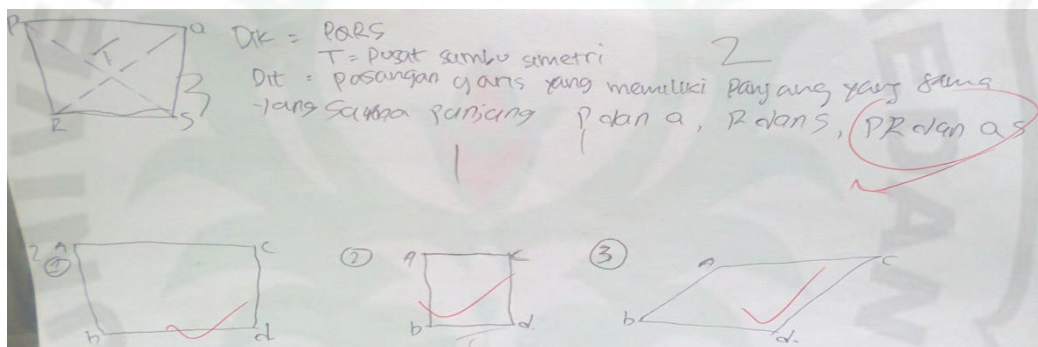 P Q Dik = PQRS
T T = Pusat sumbu simetri 2
3 Dit = pasangan garis yang memiliki panjang yang sama
R S yang sama panjang P dan Q, R dan S, PR dan QS
1
2 A C ② A C ③ A C
①
b d b d b d
MEDAN